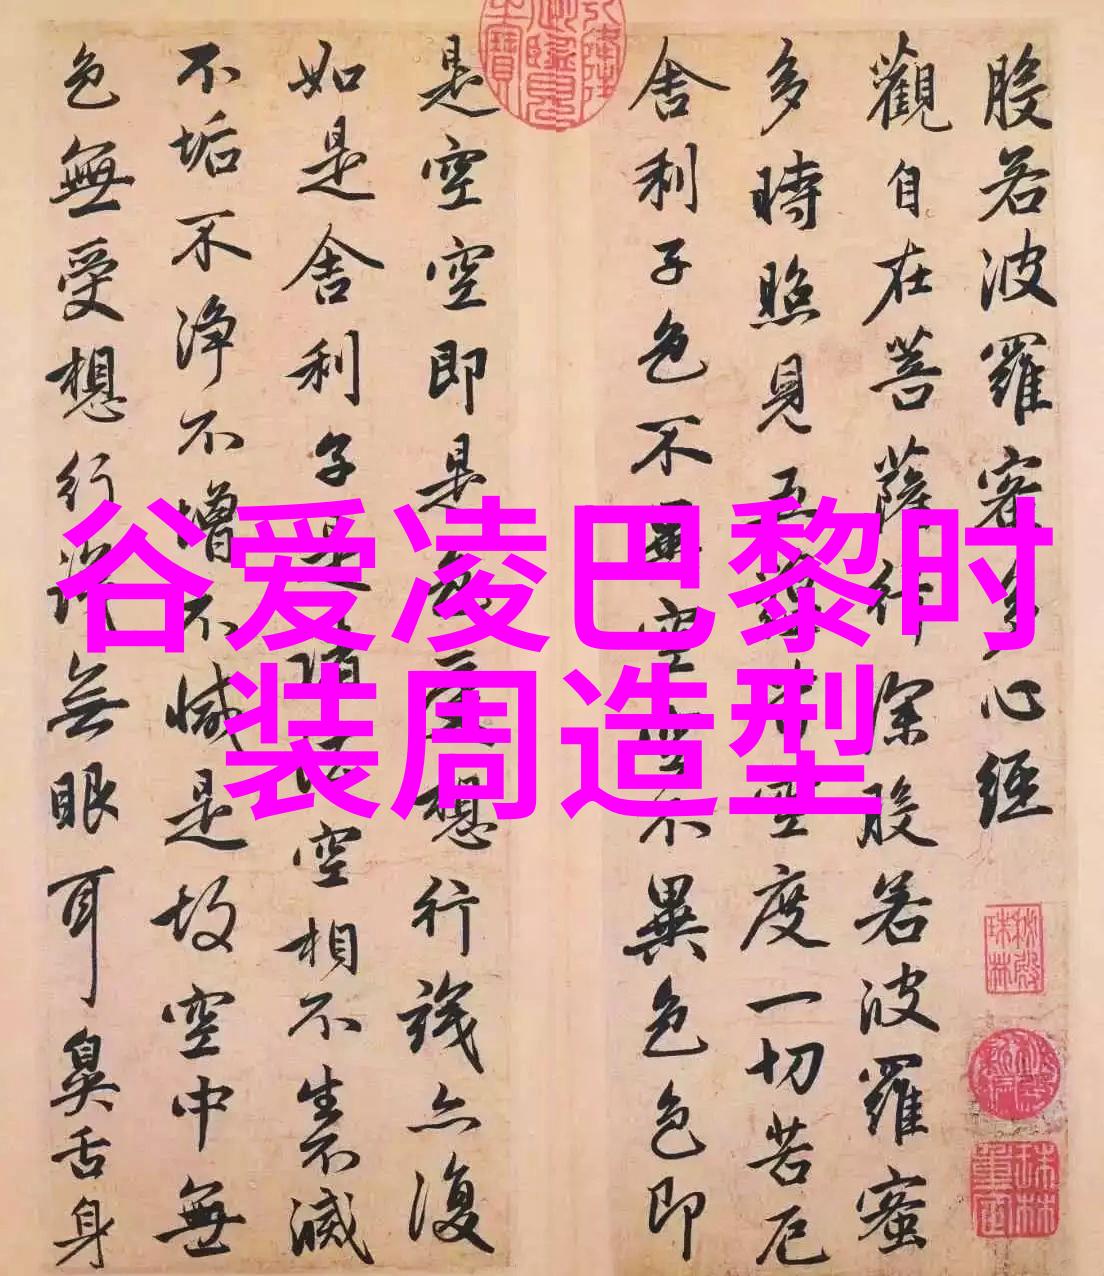 般若波羅密多心經
觀自在菩薩行深般若波羅蜜
多時照見五蘊皆空度一切苦厄
舍利子色不異空空不異色色即
是空空即是色受想行識亦復
如是舍利子是諸法空相不生不滅
不垢不净不增不減是故空中無
色無受想行識無眼耳鼻舌身
谷爱凌巴黎时
装周造型
秘殿
珠林
珠林
重定